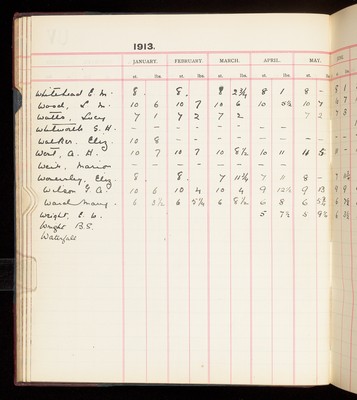 1913.
JANUARY. FEBRUARY MARCH. APRIL. MAY. JUN
st. lbs. st. lbs. st. lbs. st. lbs. st. lbs.
Whitehead E. M. 8 . 8 . 8 2¾ 8 1 8 - 8 1
Wood, L. M. 10 6 10 7 10 6 10 10 7
Watts, Lucy 7 1 7 2 7 2 7 2 7
Whitworth G. H. - - - - - - - - - -
Walker, Eliz. 10 8 - - - - - - - -
West, A. H. 10 7 10 7 10 8½ 10 11 8 -
Weir, Marion - - - - - -
Eliz. 8 . 8 . 7 11¾ 7 11 8 - 7
Wilson G. A. 10 6 10 4 10 4 9 12½ 9 13 9 9
Ward Mary. 6 6 6 8½ 6 8 6 6
Wright, E. 5 7½ 5 9½ 6
Wright B. S.
Waterfall